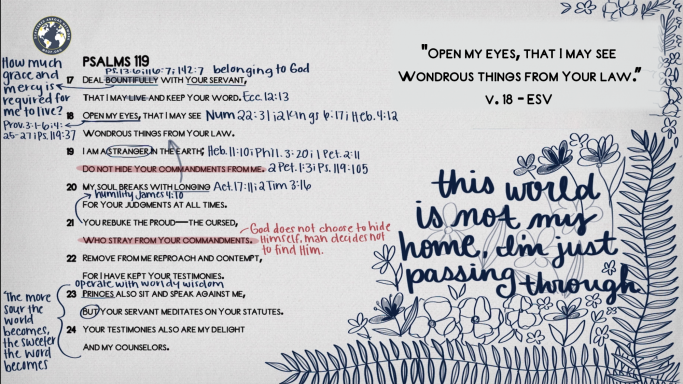 PSALMS 119
How much
grace and
mercy is
required for
me to live?
Prov. 3:1-6;4:
25-27;Ps.119:37
Ps.13:6;116:7;142:7 belonging to God
17 DEAL BOUNTIFULLY WITH YOUR SERVANT,
THAT I MAY LIVE AND KEEP YOUR WORD. Ecc.12:13
18 OPEN MY EYES, THAT I MAY SEE Num 22:31;2Kings 6:17;Heb. 4:12
WONDROUS THINGS FROM YOUR LAW.
19 I AM A STRANGER IN THE EARTH; Heb.11:10;Phil. 3:20;1 Pet. 2:11
DO NOT HIDE YOUR COMMANDMENTS FROM ME. 2 Pet.1:3;Ps.119:105
20 MY SOUL BREAKS WITH LONGING Act.17:11;2Tim 3:16
humility James 4:10
FOR YOUR JUDGMENTS AT ALL TIMES.
21 YOU REBUKE THE PROUD—THE CURSED,
WHO STRAY FROM YOUR COMMANDMENTS.
God does not choose to hide
Himself, man decides not
to find Him.
22 REMOVE FROM ME REPROACH AND CONTEMPT,
FOR I HAVE KEPT YOUR TESTIMONIES.
operate with worldy wisdom
23 PRINCES ALSO SIT AND SPEAK AGAINST ME,
BUT YOUR SERVANT MEDITATES ON YOUR STATUTES.
24 YOUR TESTIMONIES ALSO ARE MY DELIGHT
AND MY COUNSELORS.
"The more
sour the
world
becomes,
the sweeter
the word
becomes
"OPEN MY EYES, THAT I MAY SEE
WONDROUS THINGS FROM YOUR LAW."
V. 18 - ESV
this world
is not my
home, I'm just
passing through